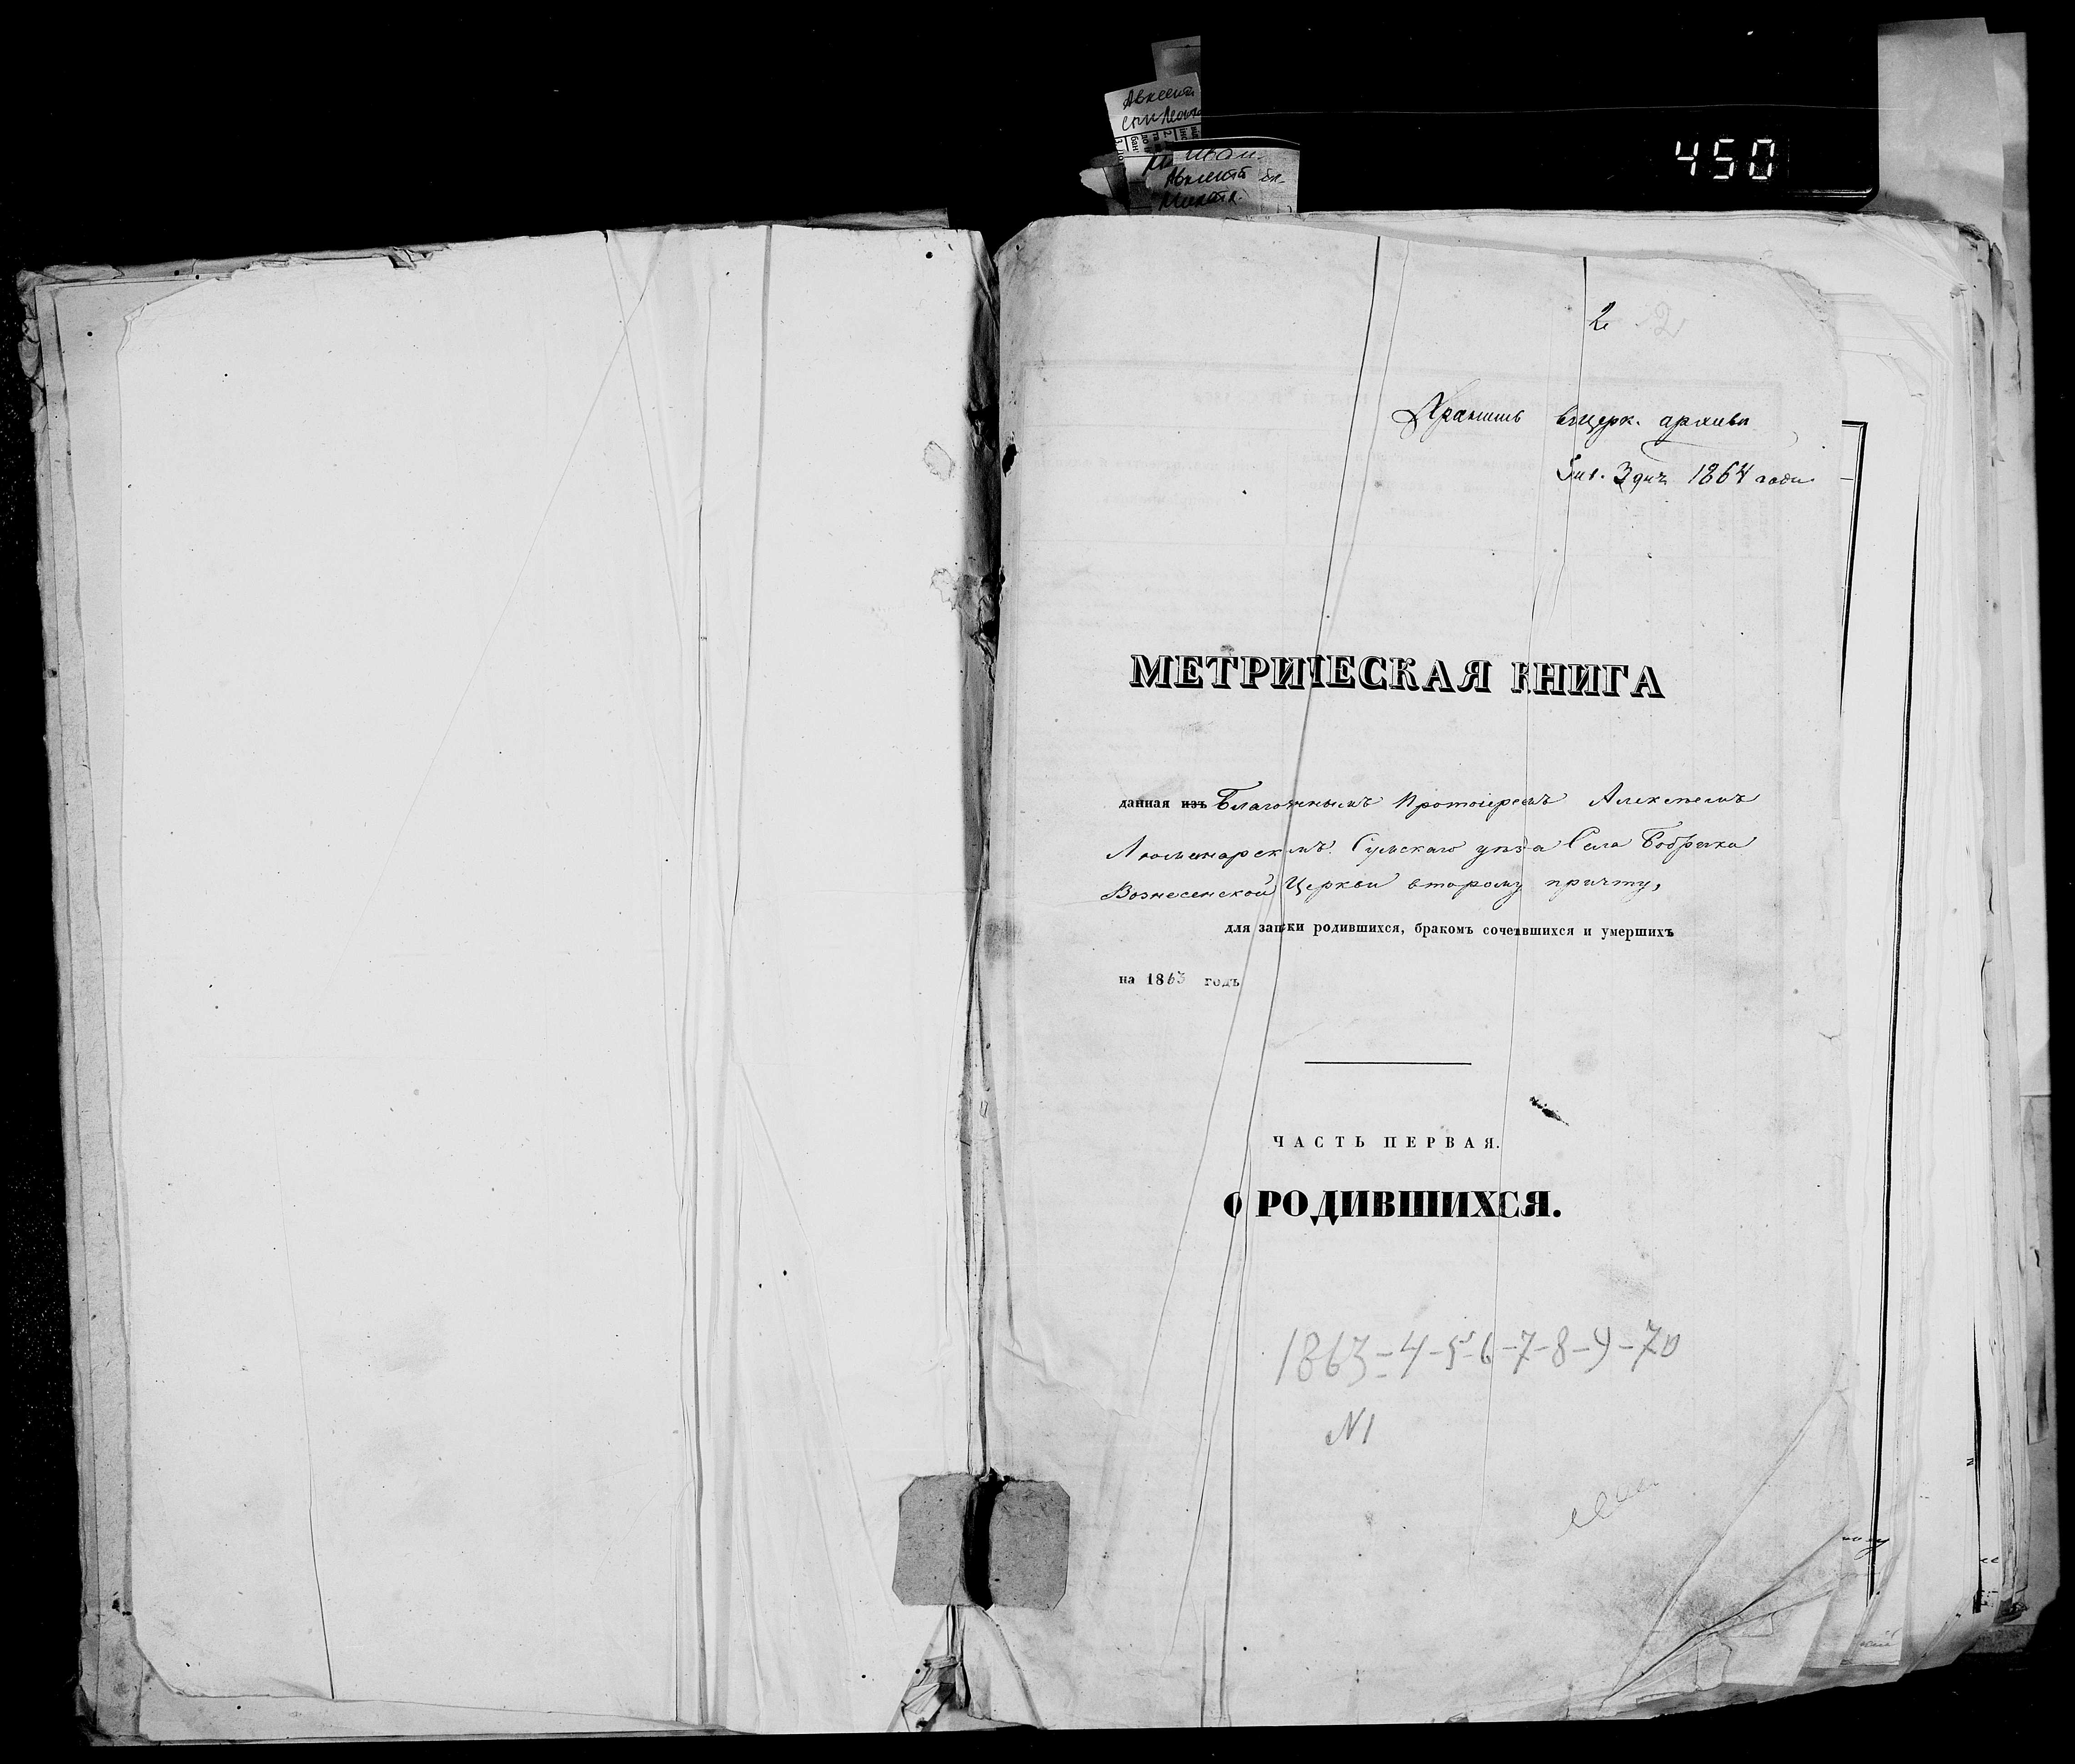 450
Авксент
Иван.
Авксент
Никита.
2 2
Хранить въ церк. архивѣ
Янв. 3 дня 1864 года
МЕТРИЧЕСКАЯ КНИГА
данная изъ Благочиннымъ Протоіереемъ Алексѣемъ
Сумскаго уѣзда Села Бобрика
Вознесенской Церкви второму причту,
для записки родившихся, бракомъ сочетавшихся и умершихъ
на 1863 годъ
ЧАСТЬ ПЕРВАЯ.
О РОДИВШИХСЯ.
1863-4-5-6-7-8-9-70
N1